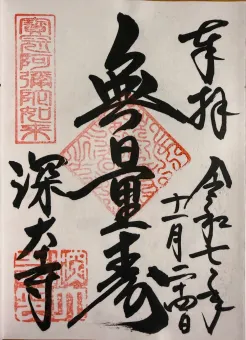 奉拝
令和七年
十一月二十四日
無量寿
寳冠阿彌陀如来
深大寺